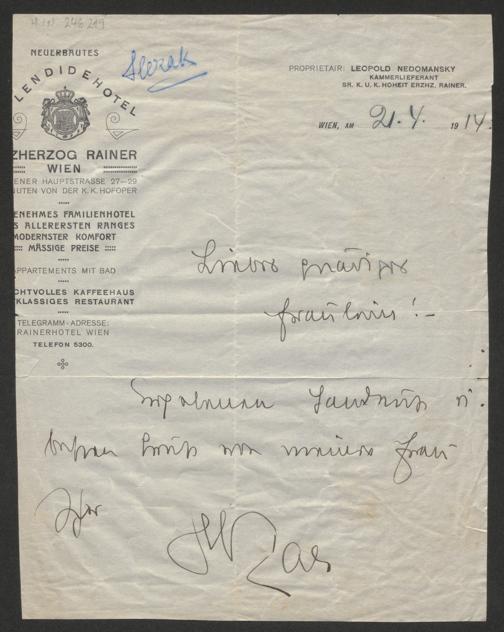 H.I.N. 246219
NEUERBAUTES
LENDIDEHOTEL
ZHERZOG RAINER
WIEN
ENER HAUPTSTRASSE 27–29
NUTEN VON DER K. K. HOFOPER
ENEHMES FAMILIENHOTEL
S ALLERERSTEN RANGES
MODERNSTER KOMFORT
MÄSSIGE PREISE
PPARTEMENTS MIT BAD
CHTVOLLES KAFFEEHAUS
KLASSIGES RESTAURANT
TELEGRAMM-ADRESSE:
RAINERHOTEL WIEN
TELEFON 5300.
Slezak
PROPRIETAIR: LEOPOLD NEDOMANSKY
KAMMERLIEFERANT
SR. K. U. K. HOHEIT ERZHZ. RAINER.
WIEN, AM 21. 4. 1914
Liebes gnädiges
Fräulein! –
Handkuß u.
besten Gruß von meiner Frau
Ihr
Slezak